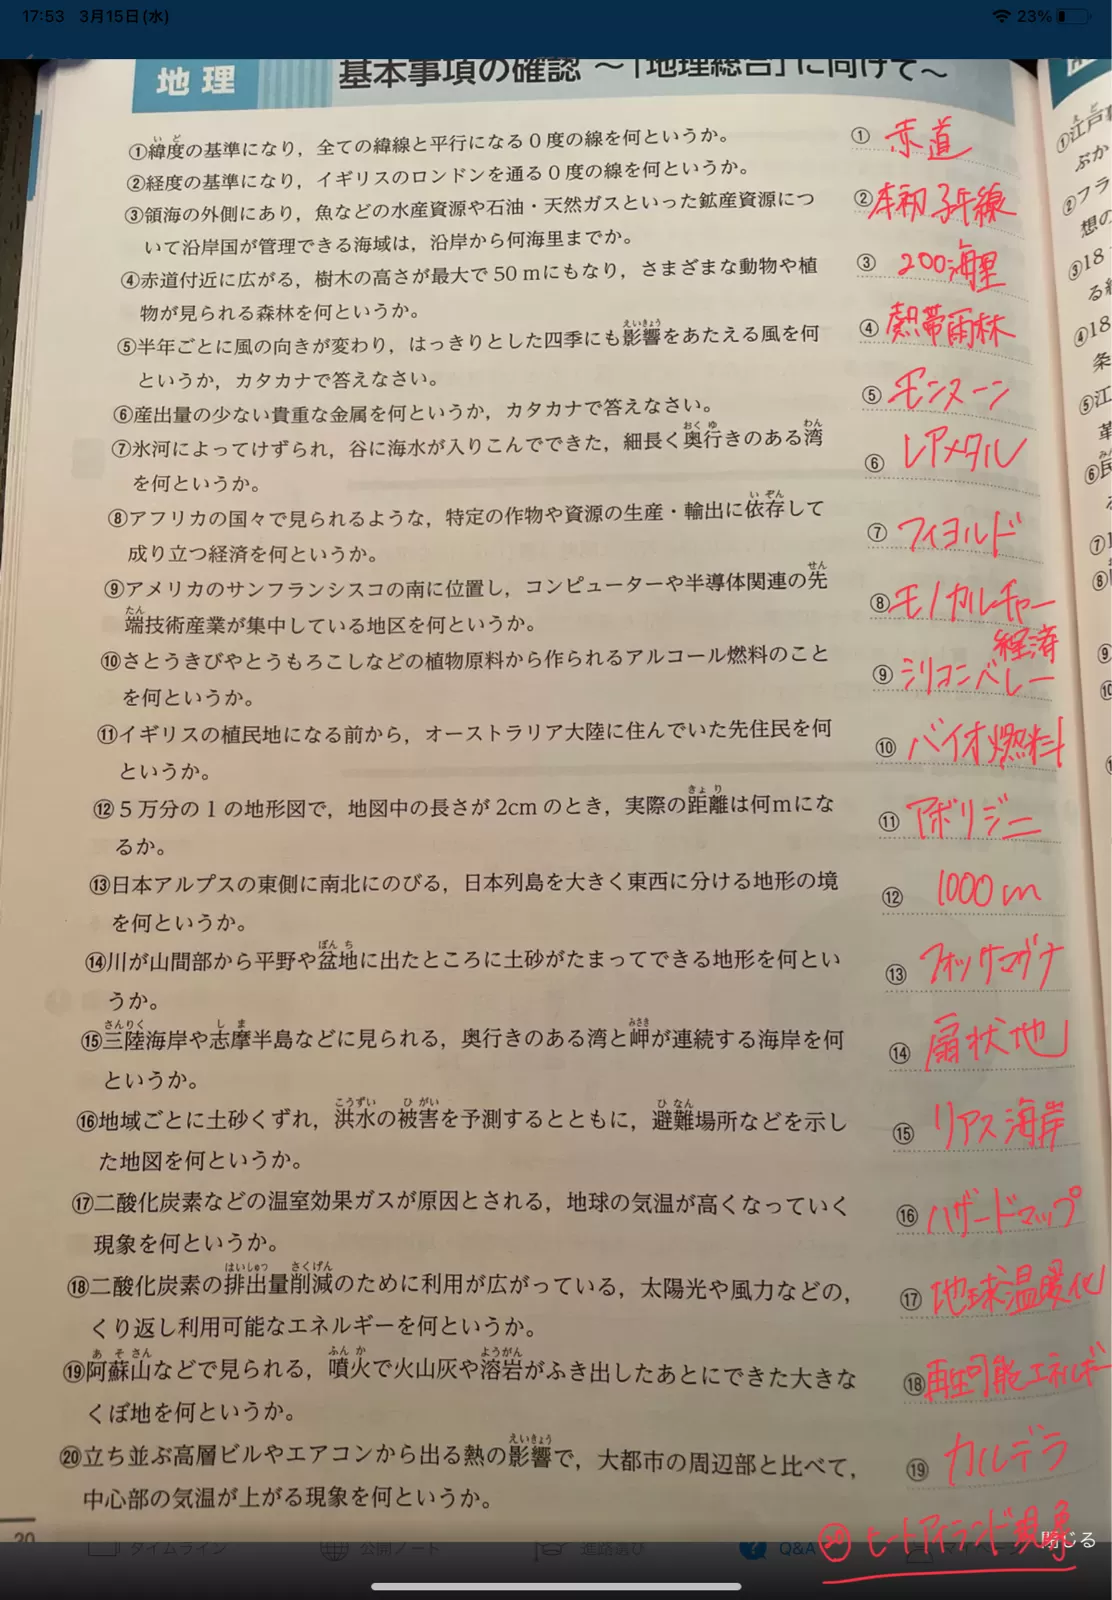 17:53 3月15日(水)
23%
地理
基本事項の確認 ～「地理総合」に向けて～
①緯度の基準になり，全ての緯線と平行になる0度の線を何というか。
① 赤道
②経度の基準になり，イギリスのロンドンを通る0度の線を何というか。
② 本初子午線
③領海の外側にあり，魚などの水産資源や石油・天然ガスといった鉱産資源につ
いて沿岸国が管理できる海域は，沿岸から何海里までか。
③ 200海里
④赤道付近に広がる，樹木の高さが最大で50mにもなり，さまざまな動物や植
物が見られる森林を何というか。
④ 熱帯雨林
⑤半年ごとに風の向きが変わり，はっきりとした四季にも影響をあたえる風を何
というか，カタカナで答えなさい。
⑤ モンスーン
⑥産出量の少ない貴重な金属を何というか，カタカナで答えなさい。
⑥ レアメタル
⑦氷河によってけずられ，谷に海水が入りこんでできた，細長く奥行きのある湾
を何というか。
⑦ フィヨルド
⑧アフリカの国々で見られるような，特定の作物や資源の生産・輸出に依存して
成り立つ経済を何というか。
⑧ モノカルチャー
経済
⑨アメリカのサンフランシスコの南に位置し，コンピューターや半導体関連の先
端技術産業が集中している地区を何というか。
⑨ シリコンバレー
⑩さとうきびやとうもろこしなどの植物原料から作られるアルコール燃料のこと
を何というか。
⑩ バイオ燃料
⑪イギリスの植民地になる前から，オーストラリア大陸に住んでいた先住民を何
というか。
⑪ アボリジニ
⑫5万分の1の地形図で，地図中の長さが2cmのとき，実際の距離は何mにな
るか。
⑫ 1000m
⑬日本アルプスの東側に南北にのびる，日本列島を大きく東西に分ける地形の境
を何というか。
⑬ フォッサマグナ
⑭川が山間部から平野や盆地に出たところに土砂がたまってできる地形を何とい
うか。
⑭ 扇状地
⑮三陸海岸や志摩半島などに見られる，奥行きのある湾と岬が連続する海岸を何
というか。
⑮ リアス海岸
⑯地域ごとに土砂くずれ，洪水の被害を予測するとともに，避難場所などを示し
た地図を何というか。
⑯ ハザードマップ
⑰二酸化炭素などの温室効果ガスが原因とされる，地球の気温が高くなっていく
現象を何というか。
⑰ 地球温暖化
⑱二酸化炭素の排出量削減のために利用が広がっている，太陽光や風力などの，
くり返し利用可能なエネルギーを何というか。
⑱ 再生可能エネルギー
⑲阿蘇山などで見られる，噴火で火山灰や溶岩がふき出したあとにできた大きな
くぼ地を何というか。
⑲ カルデラ
⑳立ち並ぶ高層ビルやエアコンから出る熱の影響で，大都市の周辺部と比べて，
中心部の気温が上がる現象を何というか。
⑳ ヒートアイランド現象
20
タイムライン
公開ノート
進路選び
Q&A
マイページ
閉じる
①江戸
ぶか
②フラ
想の
③18
る
④18
条
⑤江
革
⑥民
⑦
⑧
⑨
⑩